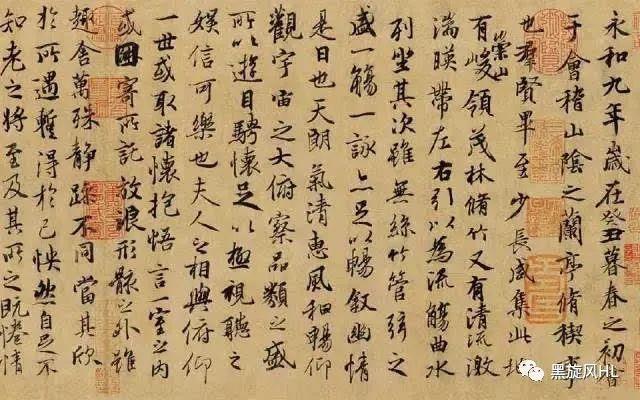 永和九年歲在癸丑暮春之初會
于會稽山陰之蘭亭脩稧事
也羣賢畢至少長咸集此地
有崇山峻領茂林脩竹又有清流激
湍暎帶左右引以為流觴曲水
列坐其次雖無絲竹管弦之
盛一觴一詠亦足以暢叙幽情
是日也天朗氣清惠風和暢仰
觀宇宙之大俯察品類之盛
所以遊目騁懷足以極視聽之
娛信可樂也夫人之相與俯仰
一世或取諸懷抱悟言一室之內
或因寄所託放浪形骸之外雖
趣舍萬殊靜躁不同當其欣
於所遇暫得於己怏然自足不
知老之將至及其所之既惓情
黑旋风HL